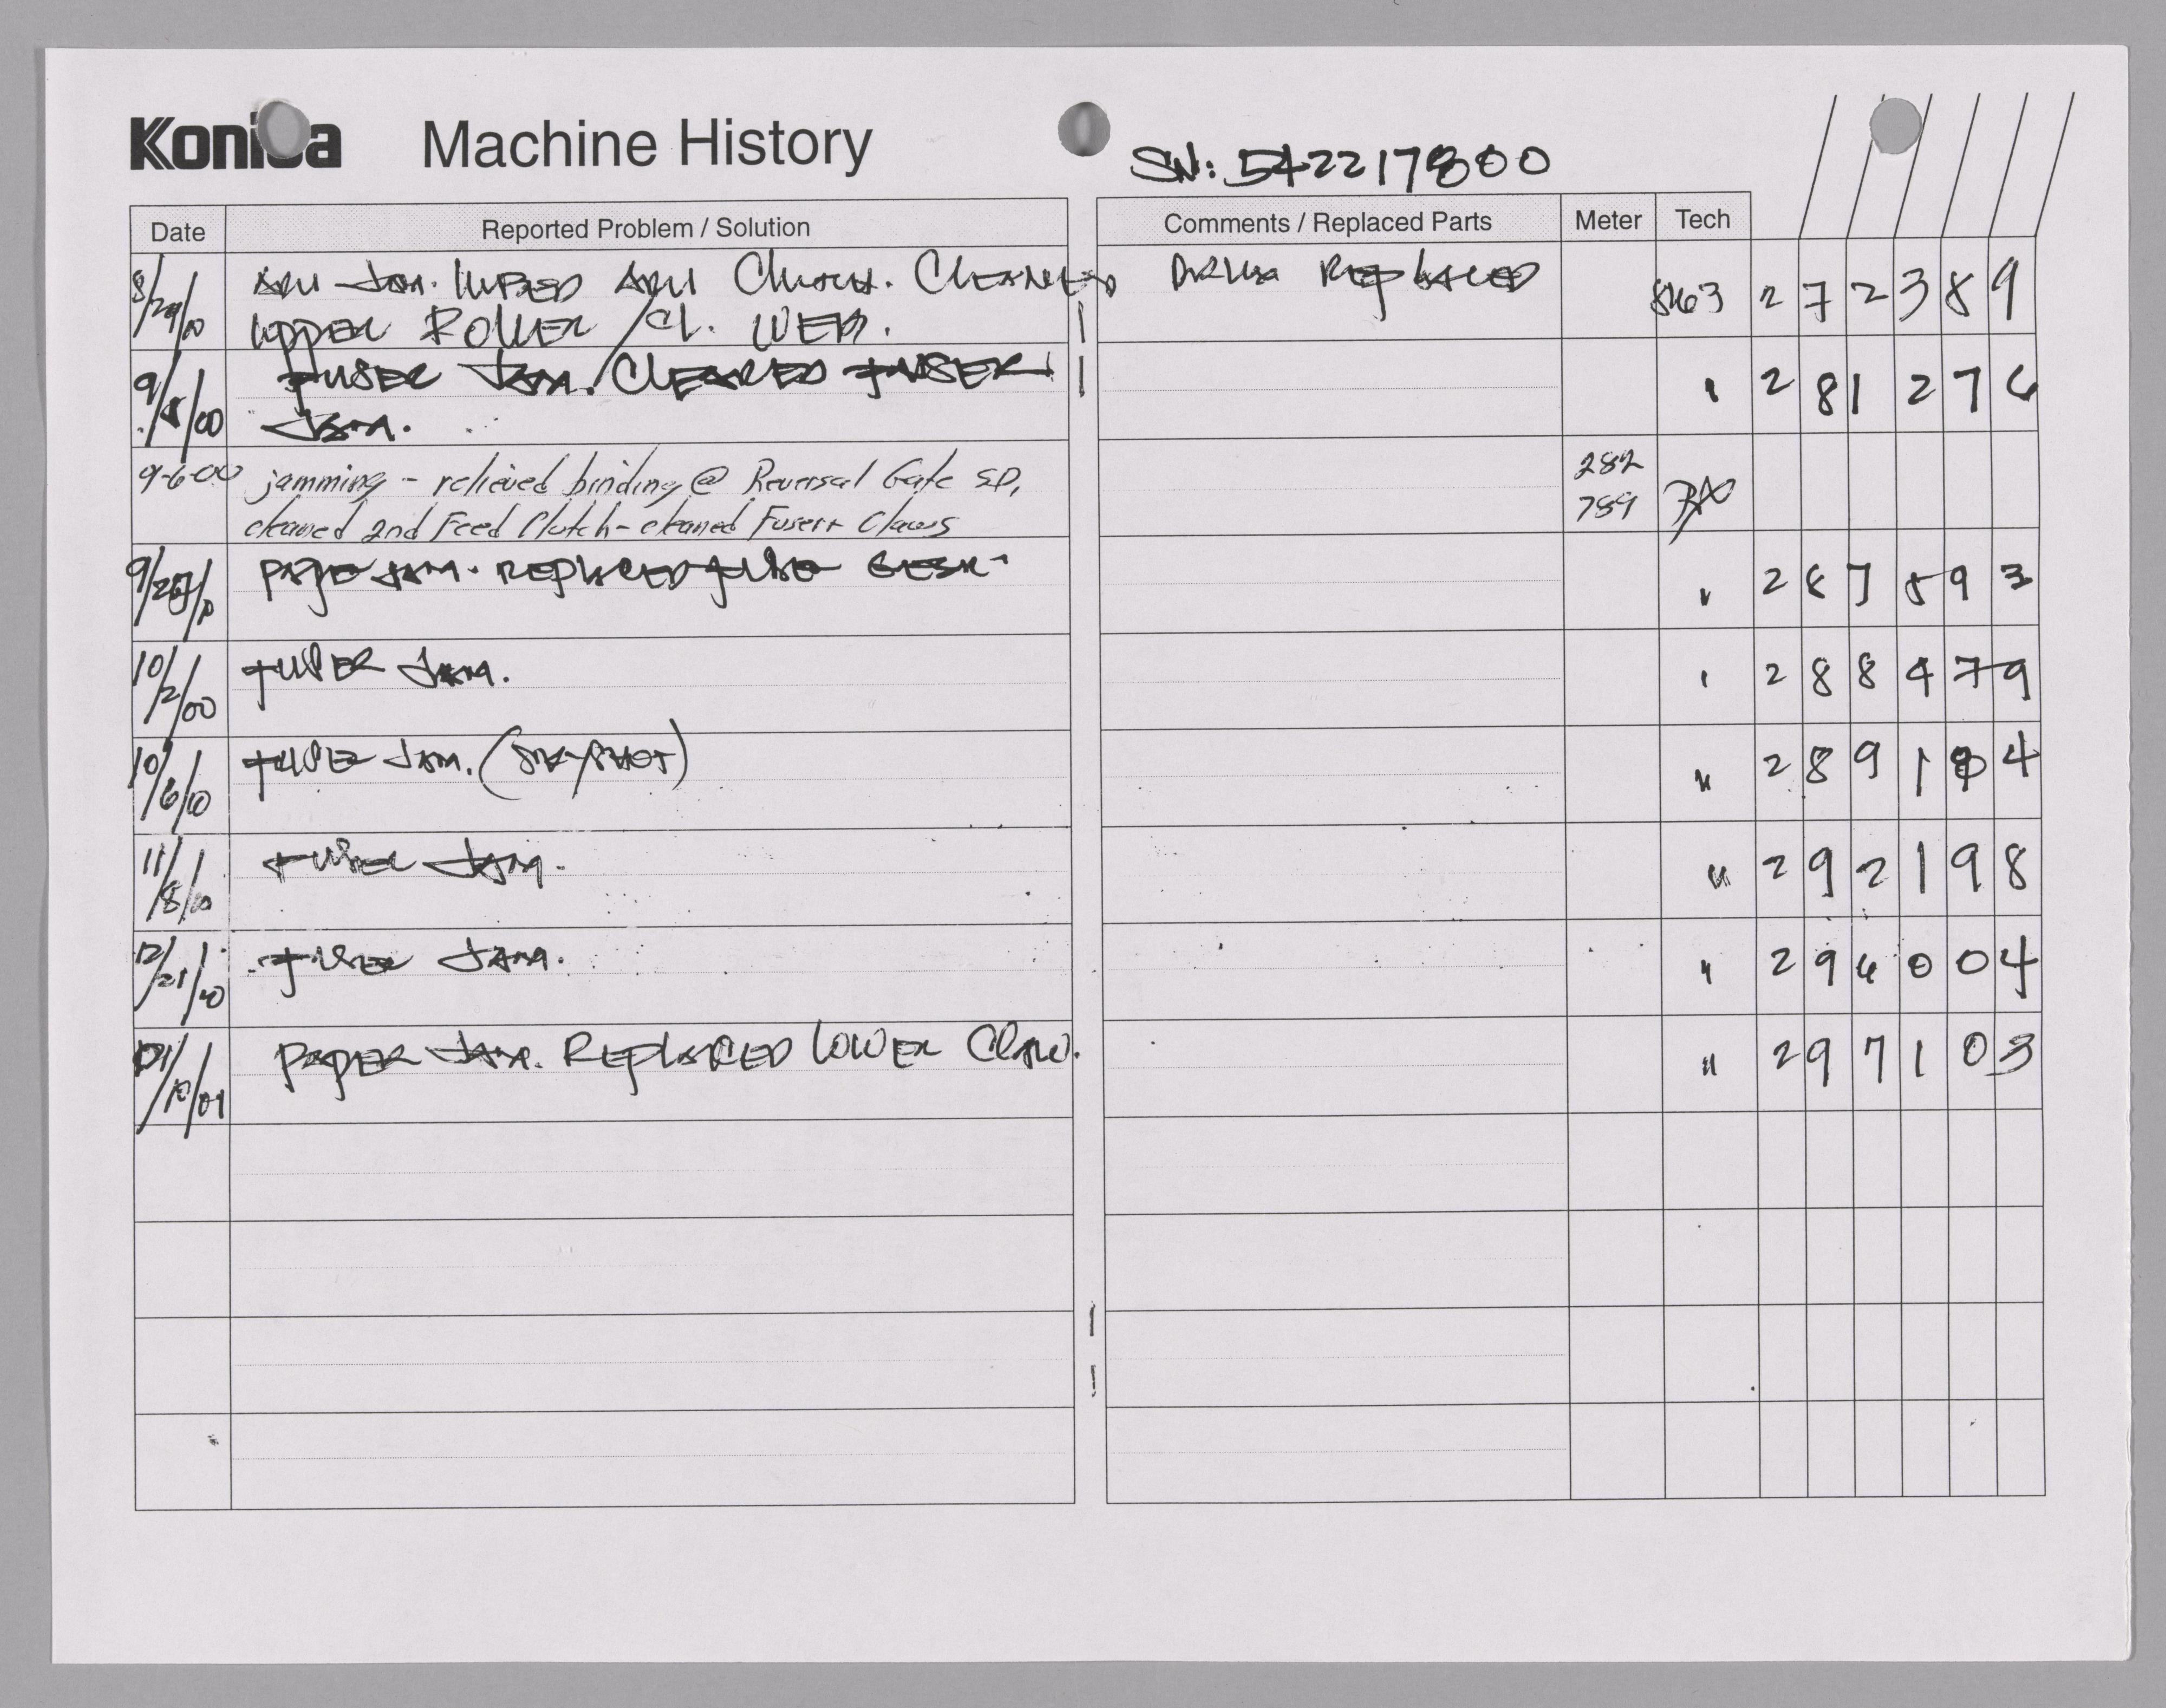 Konica Machine History
SN: 542217800
Date Reported Problem / Solution Comments / Replaced Parts Meter Tech
8/29/00 ADU JAM. ADU Clutch. CLEANED DRUM REPLACED 8463 2 7 2 3 8 9
UPPER ROLLER / Cl. WEB.
9/5/00 FUSER JAM. / CLEARED FUSER " 2 8 1 2 7 6
JAM.
9-6-00 jamming - relieved binding @ Reversal Gate SD, 282
cleaned 2nd Feed Clutch - cleaned Fuser Claws 789
PAPER JAM. REPLACED " 2 8 7 5 9 3
10/2/00 FUSER JAM. " 2 8 8 4 7 9
10/6/00 FUSER JAM. " 2 8 9 1 4
11/8/00 FUSER JAM. " 2 9 2 1 9 8
12/21/00 FUSER JAM. " 2 9 6 0 0 4
PAPER JAM. REPLACED LOWER CLAW. " 2 9 7 1 0 3